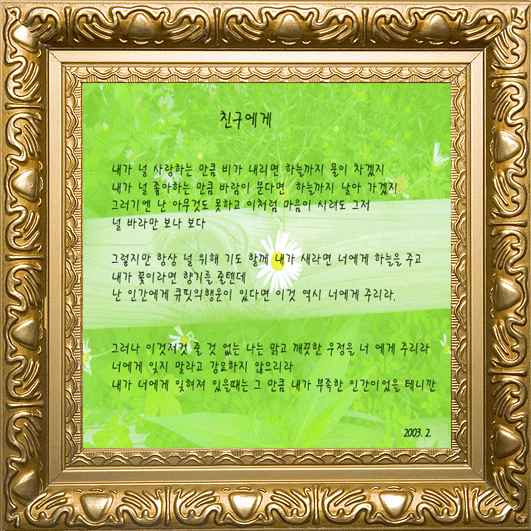 친구에게
내가 널 사랑하는 만큼 비가 내리면 하늘까지 물이 차겠지
내가 널 좋아하는 만큼 바람이 분다면 하늘까지 날아 가겠지
그러기엔 난 아무것도 못하고 이처럼 마음이 시려도 그저
널 바라만 보나 보다
그렇지만 항상 널 위해 기도 할께 내가 새라면 너에게 하늘을 주고
내가 꽃이라면 향기를 줄텐데
난 인간에게 큐핏의행운이 있다면 이것 역시 너에게 주리라.
그러나 이것저것 줄 것 없는 나는 맑고 깨끗한 우정을 너 에게 주리라
너에게 잊지 말라고 강요하지 않으리라
내가 너에게 잊혀져 있을때는 그 만큼 내가 부족한 인간이었을 테니깐
2003. 2